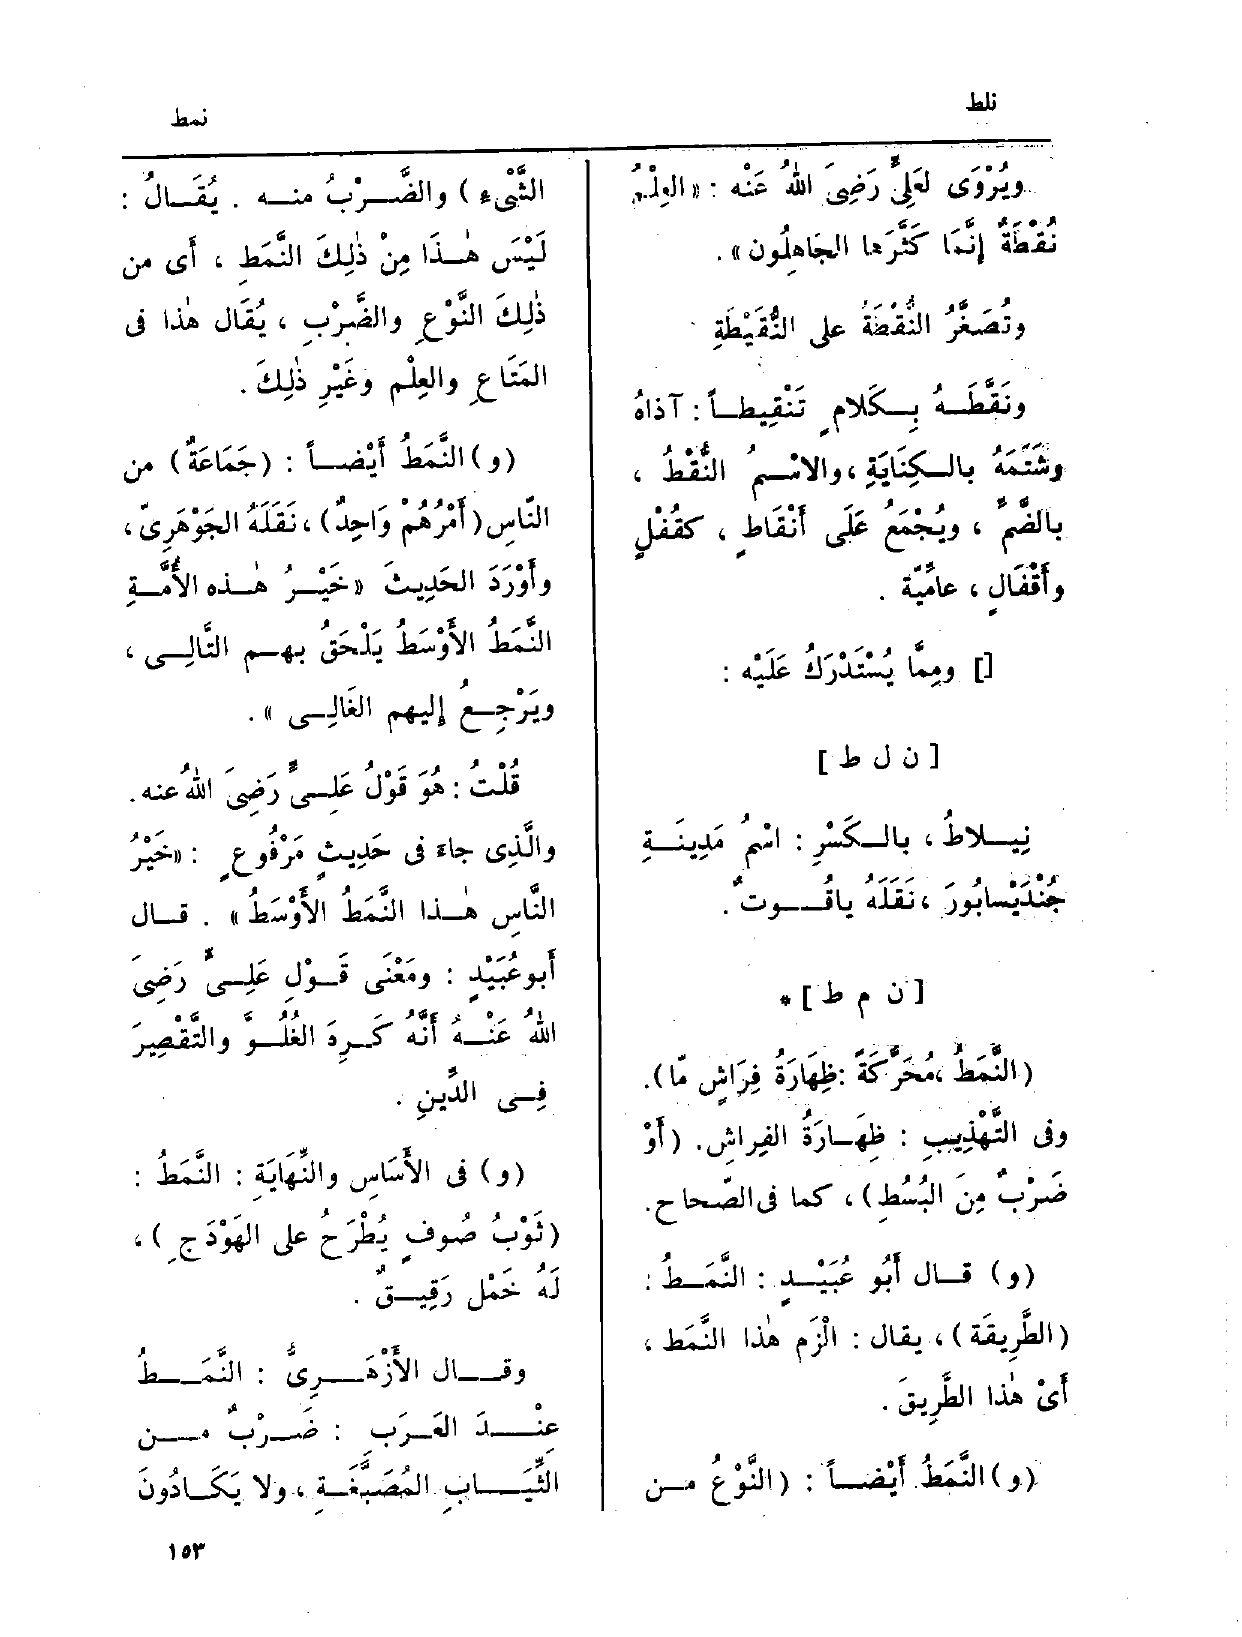 نلط
نمط
ويُرْوَى لعَلِيٍّ رَضِىَ اللهُ عَنْه : «العِلْمُ
نُقْطَةٌ إِنَّمَا كَثَّرَها الجَاهِلُون» .
وتُصَغَّرُ النُّقْطَةُ على النُّقَيْطَةِ
ونَقَّطَـهُ بِـكَلامٍ تَنْقِيطـاً : آذاهُ
وشَتَمَهُ بالـكِنَايَةِ ، والاسْـمُ النُّقْطُ ،
بالضَّمِّ ، ويُجْمَعُ عَلَى أَنْقَاطٍ ، كقُفْلٍ
وأَقْفَالٍ ، عامِّيَّة .
[] ومِمَّا يُسْتَدْرَكُ عَلَيْه :
[ ن ل ط ]
نِيـلاطُ ، بالـكَسْرِ : اسْمُ مَدِينَـةِ
جُنْدَيْسابُورَ ، نَقَلَهُ ياقُـوتٌ .
[ ن م ط ] *
(النَّمَطُ ،مُحَرَّكَةً :ظِهَارَةُ فِرَاشٍ مّا).
وفى التَّهْذِيبِ : ظِهَـارَةُ الفِراشِ. (أَوْ
ضَرْبٌ مِنَ البُسُطِ) ، كما فى الصّحاح.
(و) قـال أَبُو عُبَيْـدٍ : النَّمَـطُ :
(الطَّرِيقَة) ، يقال : الْزَمْ هٰذا النَّمَطَ ،
أَىْ هٰذا الطَّرِيقَ .
(و) النَّمَطُ أَيْضـاً : (النَّوْعُ مـن
الشَّىْءِ) والضَّـرْبُ منـه . يُقَـالُ :
لَيْسَ هـٰذَا مِنْ ذٰلِكَ النَّمَطِ ، أى من
ذٰلِكَ النَّوْعِ والضَّرْبِ ، يُقَال هٰذا فى
المَتَاعِ والعِلْمِ وغَيْرِ ذٰلِكَ .
(و) النَّمَطُ أَيْضـاً : (جَمَاعَةٌ) من
النّاسِ (أَمْرُهُمْ وَاحِدٌ) ، نَقَلَهُ الجَوْهَرِىّ ،
وأَوْرَدَ الحَدِيثَ «خَيْـرُ هـٰذه الأُمَّـةِ
النَّمَطُ الأَوْسَطُ يَلْحَقُ بهـم التَّالِـى ،
ويَرْجِـعُ إليهم الغَالِـى » .
قُلْتُ : هُوَ قَوْلُ عَلِـىٍّ رَضِىَ اللهُ عنه .
والَّذِى جاءَ فى حَدِيثٍ مَرْفُوعٍ : «خَيْرُ
النَّاسِ هـٰذا النَّمَطُ الأَوْسَطُ » . قـال
أَبو عُبَيْدٍ : ومَعْنَى قَـوْلِ عَلِـىٍّ رَضِىَ
اللهُ عَنْـهُ أَنَّهُ كَـرِهَ الغُلُـوَّ والتَّقْصِيرَ
فِـى الدِّينِ .
(و) فى الأَسَاسِ والنِّهَايَةِ : النَّمَطُ :
(ثَوْبُ صُوفٍ يُطْرَحُ على الهَوْدَجِ) ،
لَهُ خَمْل رَقِيـقٌ .
وقـال الأَزْهَـرِىُّ : النَّمَـطُ
عِنْـدَ العَـرَبِ : ضَـرْبٌ مـن
الثِّيَـابِ المُصَبَّغَـةِ ، ولا يَكَادُونَ
١٥٣